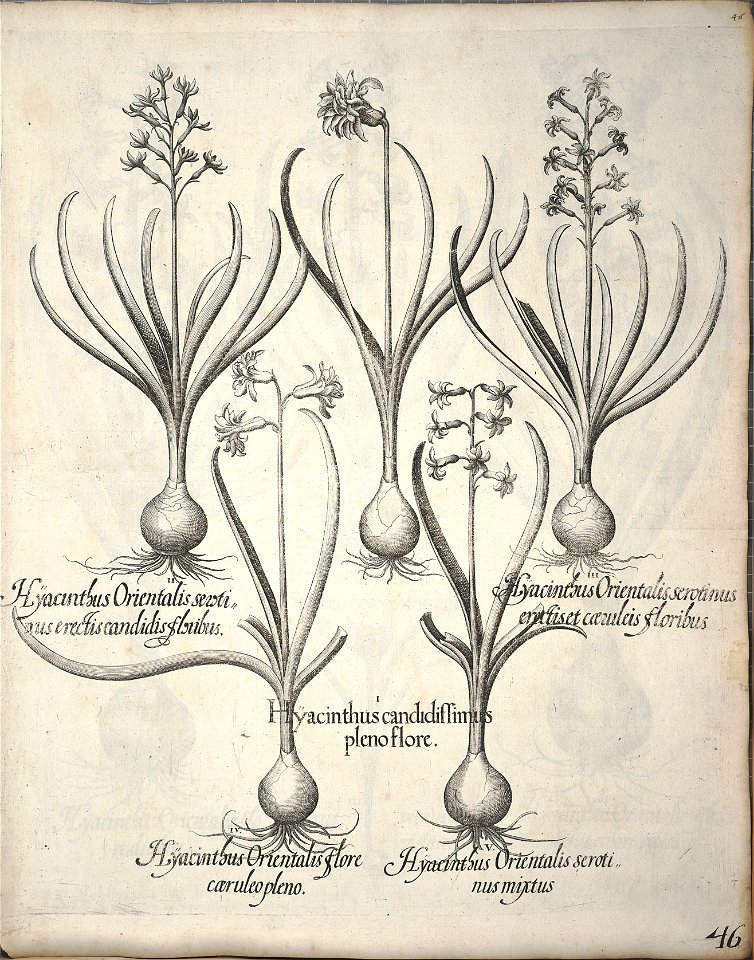 46
II
Hÿacinthus Orientalis seroti„
nus erectis candidis floribus.
III
Hyacinthus Orientalis serotinus
erectis et cæruleis floribus
I
Hÿacinthus candidissimus
pleno flore.
IV.
Hÿacinthus Orientalis flore
cæruleo pleno.
V.
Hÿacinthus Orientalis seroti„
nus mixtus
46